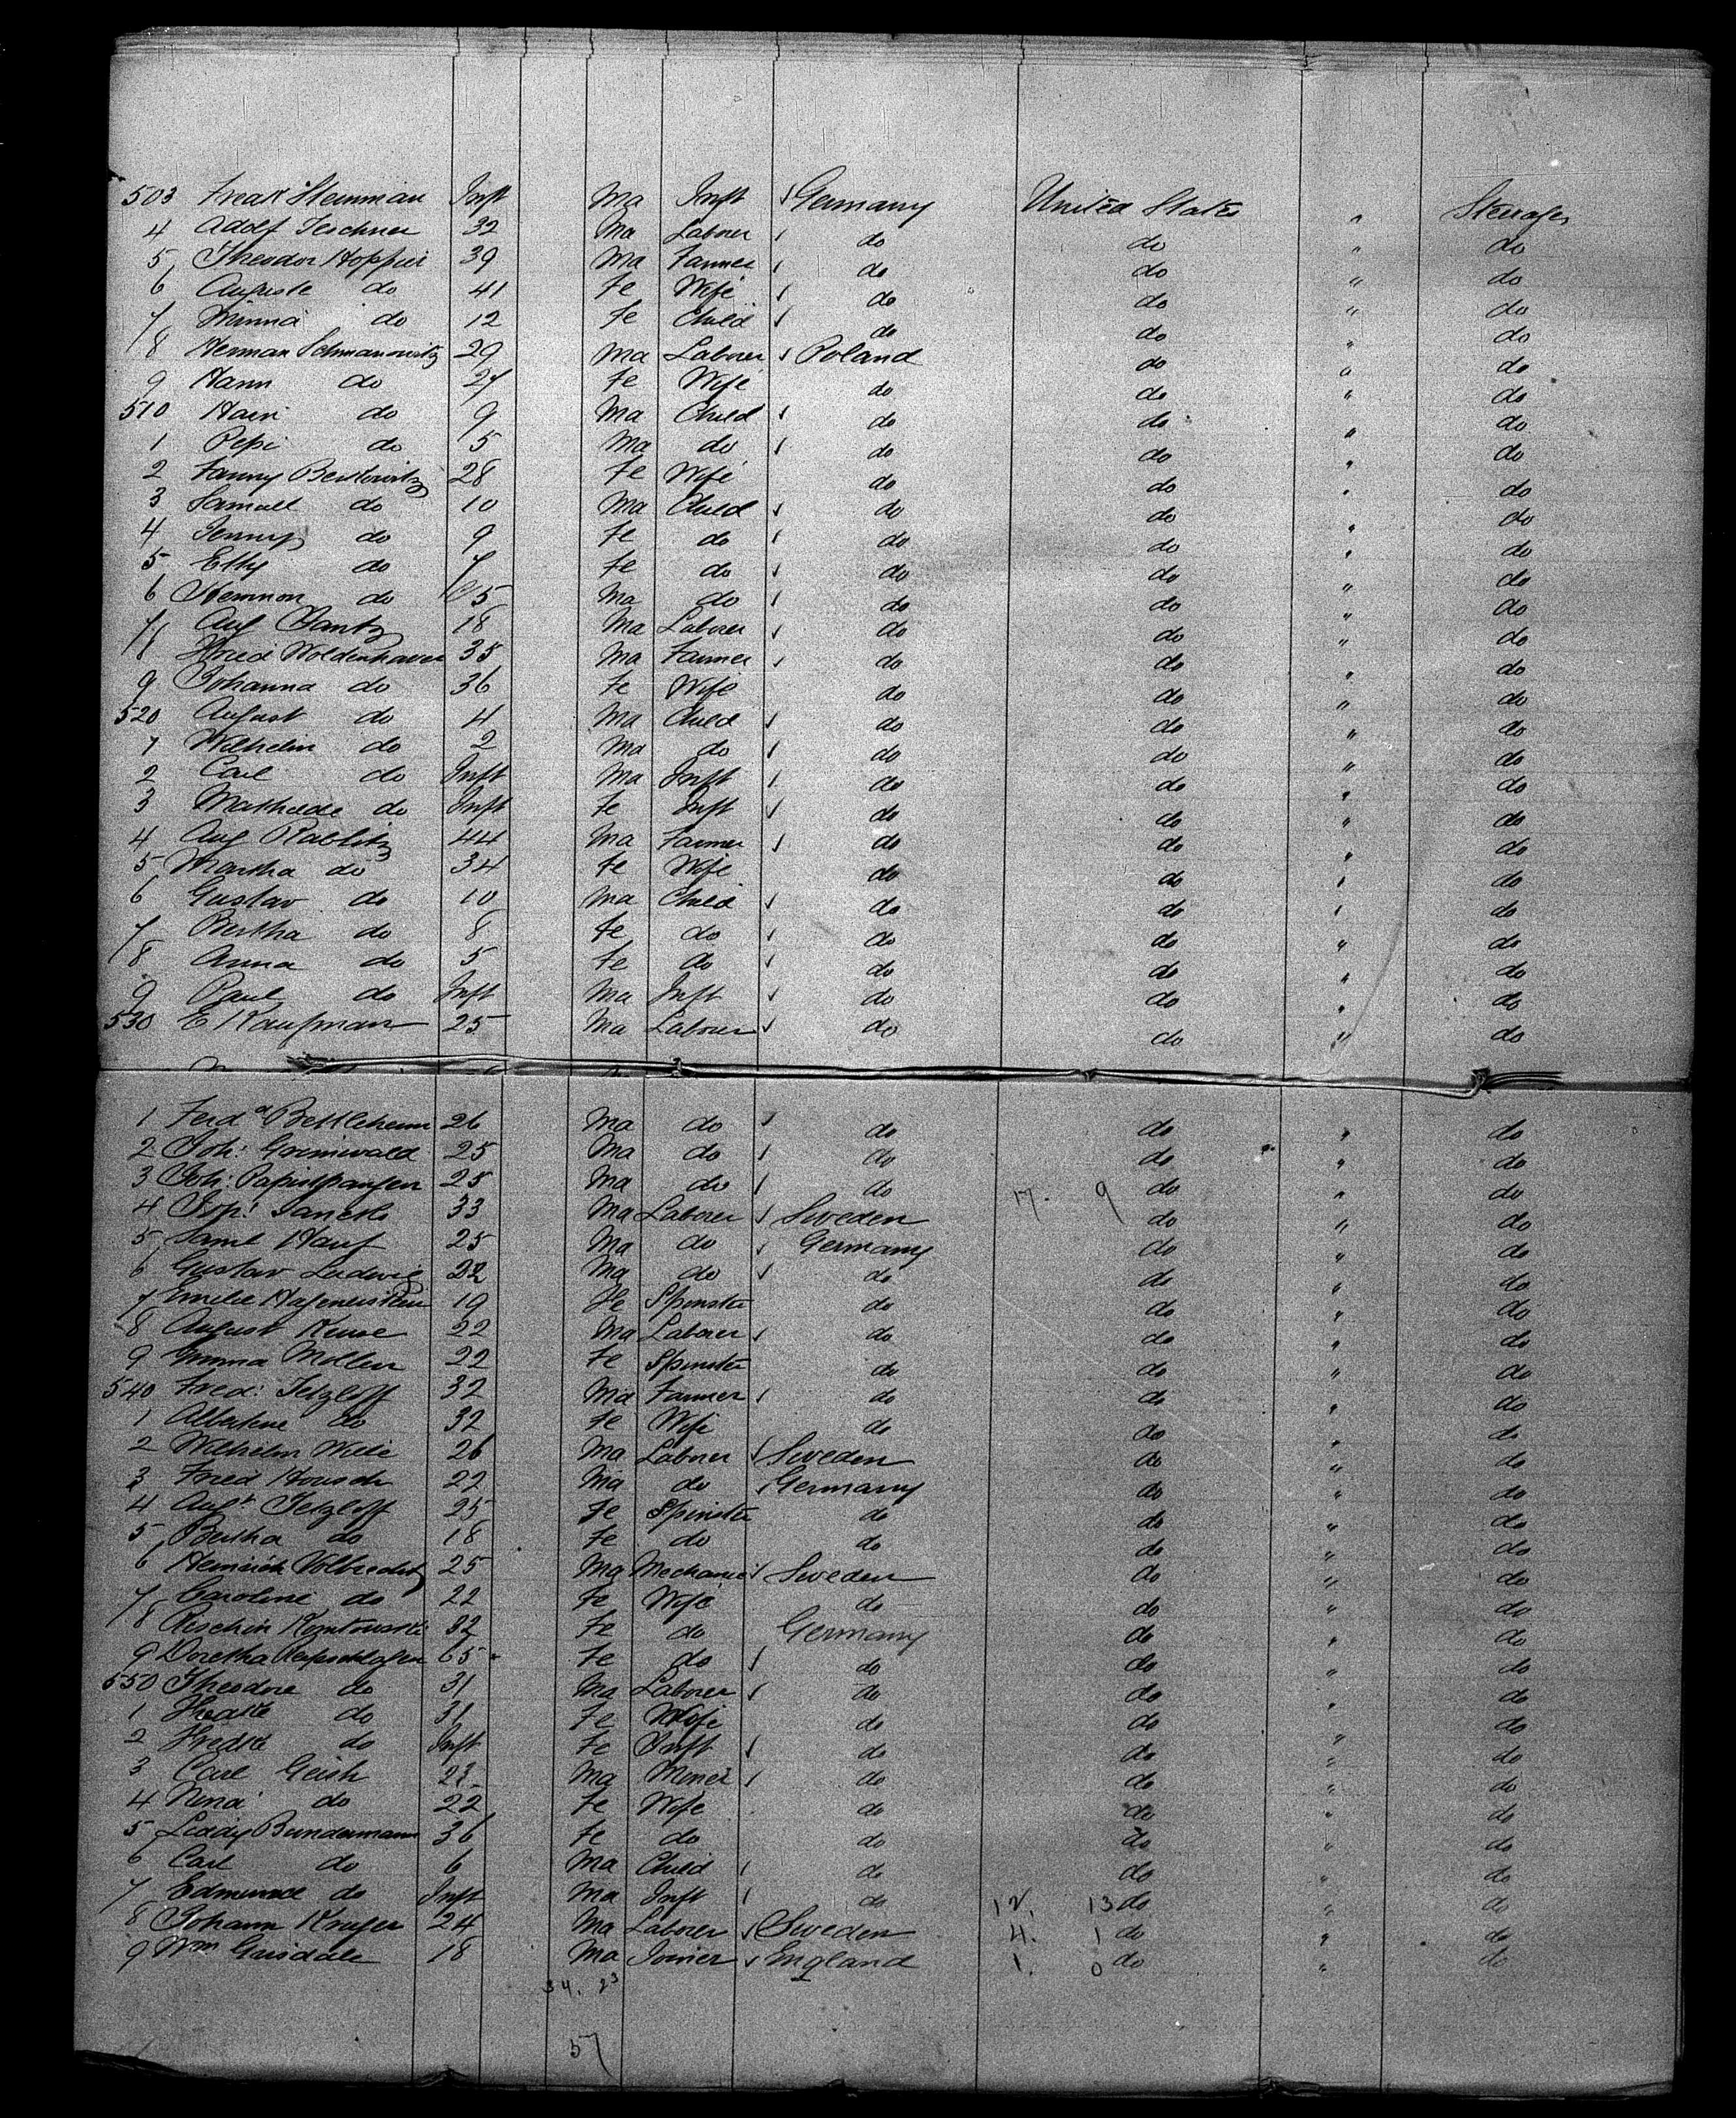 503 Fredk Steinman Inft Ma Inft ✓ Germany United States " Steerage
4 Adolf Teschner 32 Ma Laborer ✓ do do " do
5 Theodor Hoppus 39 Ma Farmer ✓ do do " do
6 Auguste do 41 Fe Wife ✓ do do " do
7 Minna do 12 Fe Child ✓ do do " do
8 Herman Schmanowitz 29 Ma Laborer ✓ Poland do " do
9 Hann do 27 Fe Wife do do " do
510 Hain do 9 Ma Child ✓ do do " do
1 Pepi do 5 Ma do ✓ do do " do
2 Fanny Berkowitz 28 Fe Wife do do " do
3 Samuel do 10 Ma Child ✓ do do " do
4 Jenny do 9 Fe do ✓ do do " do
5 Etty do 7 Fe do ✓ do do " do
6 Hermon do 5 Ma do ✓ do do " do
7 Aug 18 Ma Laborer ✓ do do " do
8 Fried Woldenhaver 35 Ma Farmer ✓ do do " do
9 Johanna do 36 Fe Wife do do " do
520 August do 4 Ma Child ✓ do do " do
1 Wilhelm do 2 Ma do ✓ do do " do
2 Carl do Inft Ma Inft ✓ do do " do
3 Mathilde do Inft Fe Inft ✓ do do " do
4 Aug Rablitz 44 Ma Farmer ✓ do do " do
5 Martha do 34 Fe Wife do do " do
6 Gustav do 10 Ma Child ✓ do do " do
7 Bertha do 8 Fe do ✓ do do " do
8 Anna do 5 Fe do ✓ do do " do
9 Paul do Inft Ma Inft ✓ do do " do
530 E Kaufman 25 Ma Laborer ✓ do do " do
1 Ferd Bettleheim 26 Ma do ✓ do do " do
2 Joh: Grunwald 25 Ma do ✓ do do " do
3 Joh: 25 Ma do ✓ do 17. 9 do " do
4 33 Ma Laborer ✓ Sweden do " do
5 Saml Hauf 25 Ma do ✓ Germany do " do
6 Gustav Ludwig 22 Ma do ✓ do do " do
7 Emelie 19 Fe Spinster do do " do
8 August Kruse 22 Ma Laborer ✓ do do " do
9 Emma Moller 22 Fe Spinster do do " do
540 Fred: Tetzloff 32 Ma Farmer ✓ do do " do
1 Albertine do 32 Fe Wife do do " do
2 Wilhelm Wille 26 Ma Laborer ✓ Sweden do " do
3 Fried 22 Ma do ✓ Germany do " do
4 Augt Tetzloff 25 Fe Spinster do do " do
5 Bertha do 18 Fe do do do " do
6 Heinrich Volbrecht 25 Ma Mechanic ✓ Sweden do " do
7 Caroline do 22 Fe Wife do do " do
8 32 Fe do Germany do " do
9 Doretha 65 Fe do ✓ do do " do
550 Theodore do 31 Ma Laborer ✓ do do " do
1 do 31 Fe Wife do do " do
2 Fredke do Inft Fe Inft ✓ do do " do
3 Carl Geish Ma Miner ✓ do do " do
4 Nina do 22 Fe Wife do do " do
5 Liddy Bundermann 36 Fe do do do " do
6 Carl do 6 Ma Child ✓ do do " do
7 Edmund do Inft Ma Inft ✓ do 12. 13 do " do
8 Johann Kruger 24 Ma Laborer ✓ Sweden 4. 1 do " do
9 Wm Grisdale 18 Ma Joiner ✓ England 1. 0 do " do
34. 23
57